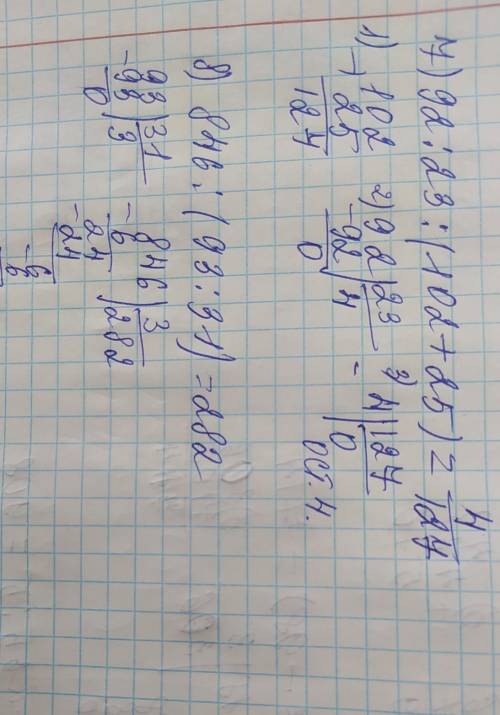 7) 92 : 23 : (102 + 25) = 4/127
1) + 102 2) 92 | 23 3) 4 | 127
25 - 92 | 4 = | 0
127 0 ост. 4.
8) 846 : (93 : 31) = 282
93 | 31 846 | 3
- 93 | 3 - 6 | 282
0 24
- 24
6
- 6